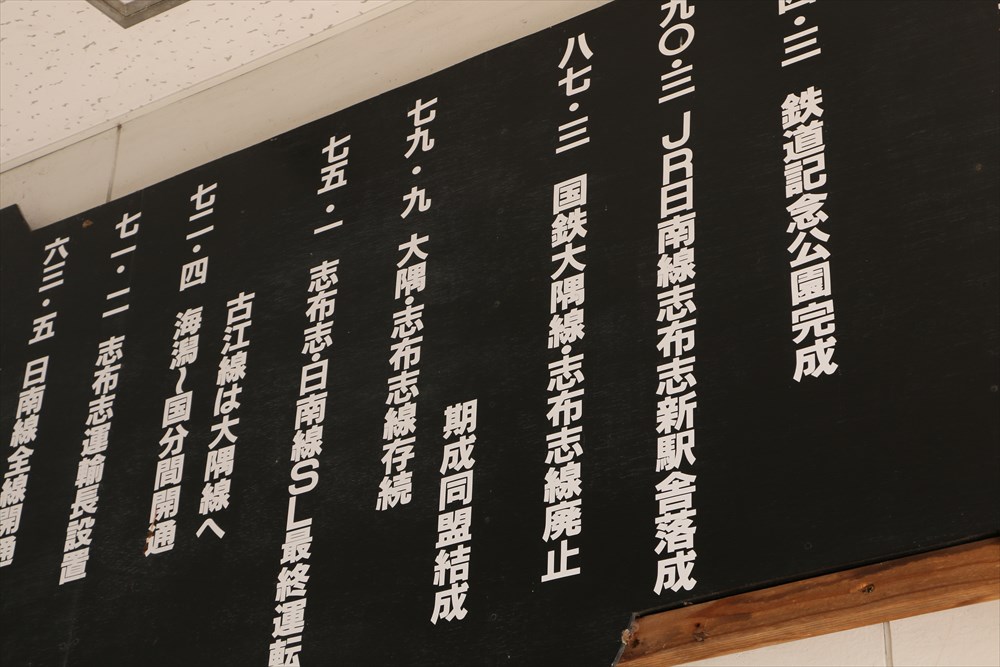 六三・五 日南線全線開通
七一・二 志布志運輸長設置
七二・四 海潟〜国分間開通
古江線は大隅線へ
七五・一 志布志・日南線SL最終運転
七九・九 大隅・志布志線存続
期成同盟結成
八七・三 国鉄大隅線・志布志線廃止
九〇・三 JR日南線志布志新駅舎落成
・三 鉄道記念公園完成